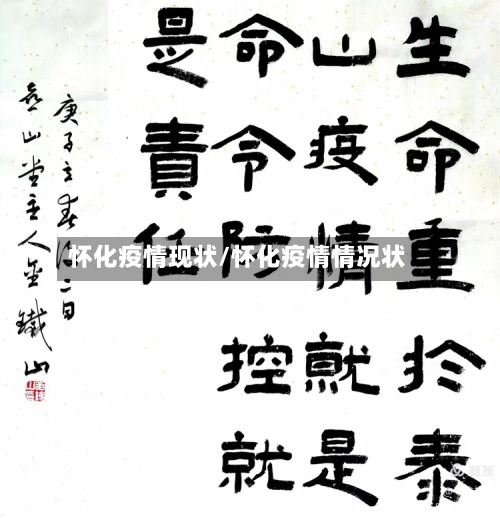 生命重於泰
山疫情就是
命令防控就
是責任
庚子立春後二日
金山堂主人金鐵山
怀化疫情现状/怀化疫情情况状